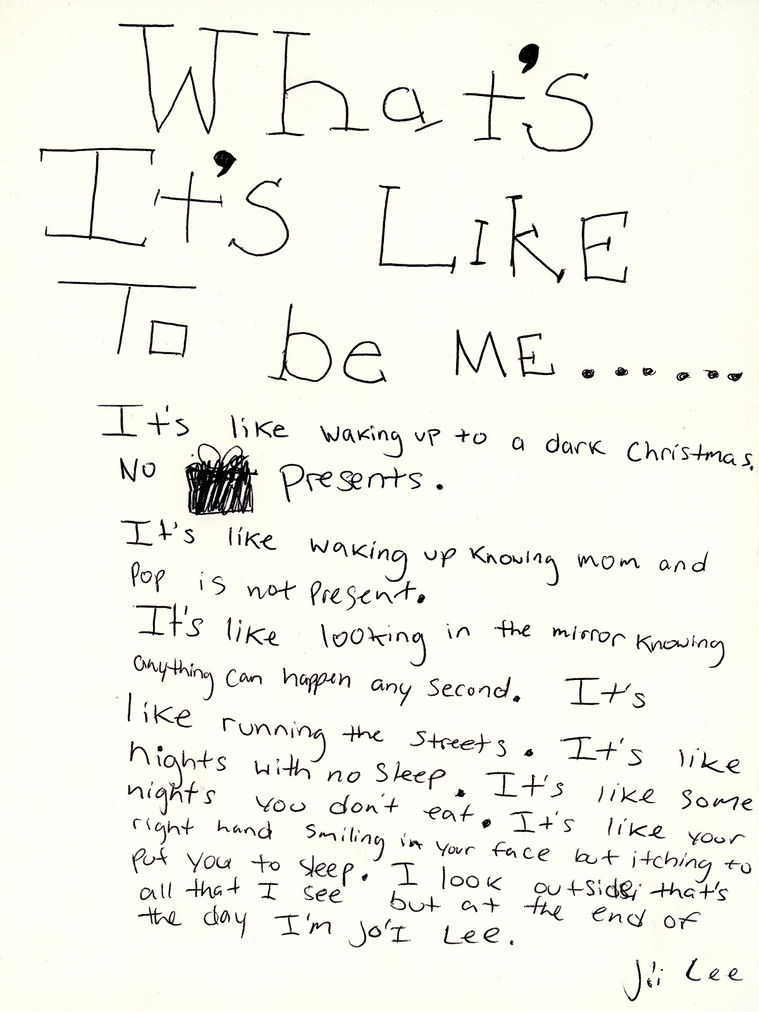 What's
It's LIKE
To be ME......
It's like waking up to a dark Christmas.
NO Presents.
It's like waking up knowing mom and
Pop is not present.
It's like looking in the mirror knowing
anything can happen any second. It's
like running the streets. It's like
nights with no sleep. It's like some
nights you don't eat. It's like your
right hand smiling in your face but itching to
put you to sleep. I look outside that's
all that I see but at the end of
the day I'm Jo'I Lee.
Jo'i Lee